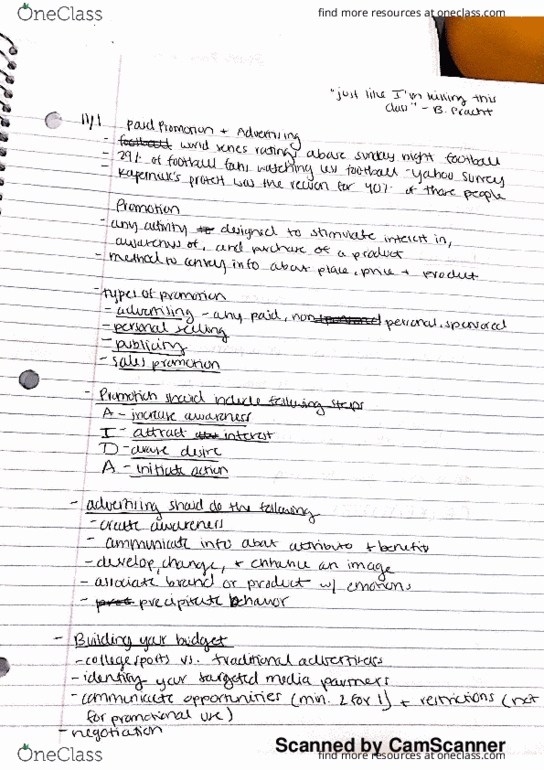 OneClass
find more resources at oneclass.com
"just like I'm kissing this
class" - B. Pracht
11/1
paid promotion + Advertising
- football world series ratings above sunday night football
- 29% of football fans watching less football - Yahoo Survey
- Kapernick's protest was the reason for 40% of those people
Promotion
- any activity designed to stimulate interest in,
awareness of, and purchase of a product
- method to convey info about place, price + product
- types of promotion
- advertising - any paid, non personal, sponsored
- personal selling
- publicity
- sales promotion
- Promotion should include following steps
A - increase awareness
I - attract interest
D - arouse desire
A - initiate action
- advertising should do the following
- create awareness
- communicate info about attributes + benefits
- develop, change, + enhance an image
- associate brand or product w/ emotions
- precipitate behavior
- Building your budget
- college sports vs. traditional advertisers
- identifying your targeted media partners
- communicate opportunities (min. 2 for 1) + restrictions (not
for promotional use)
- negotiation
Scanned by CamScanner
OneClass
find more resources at oneclass.com